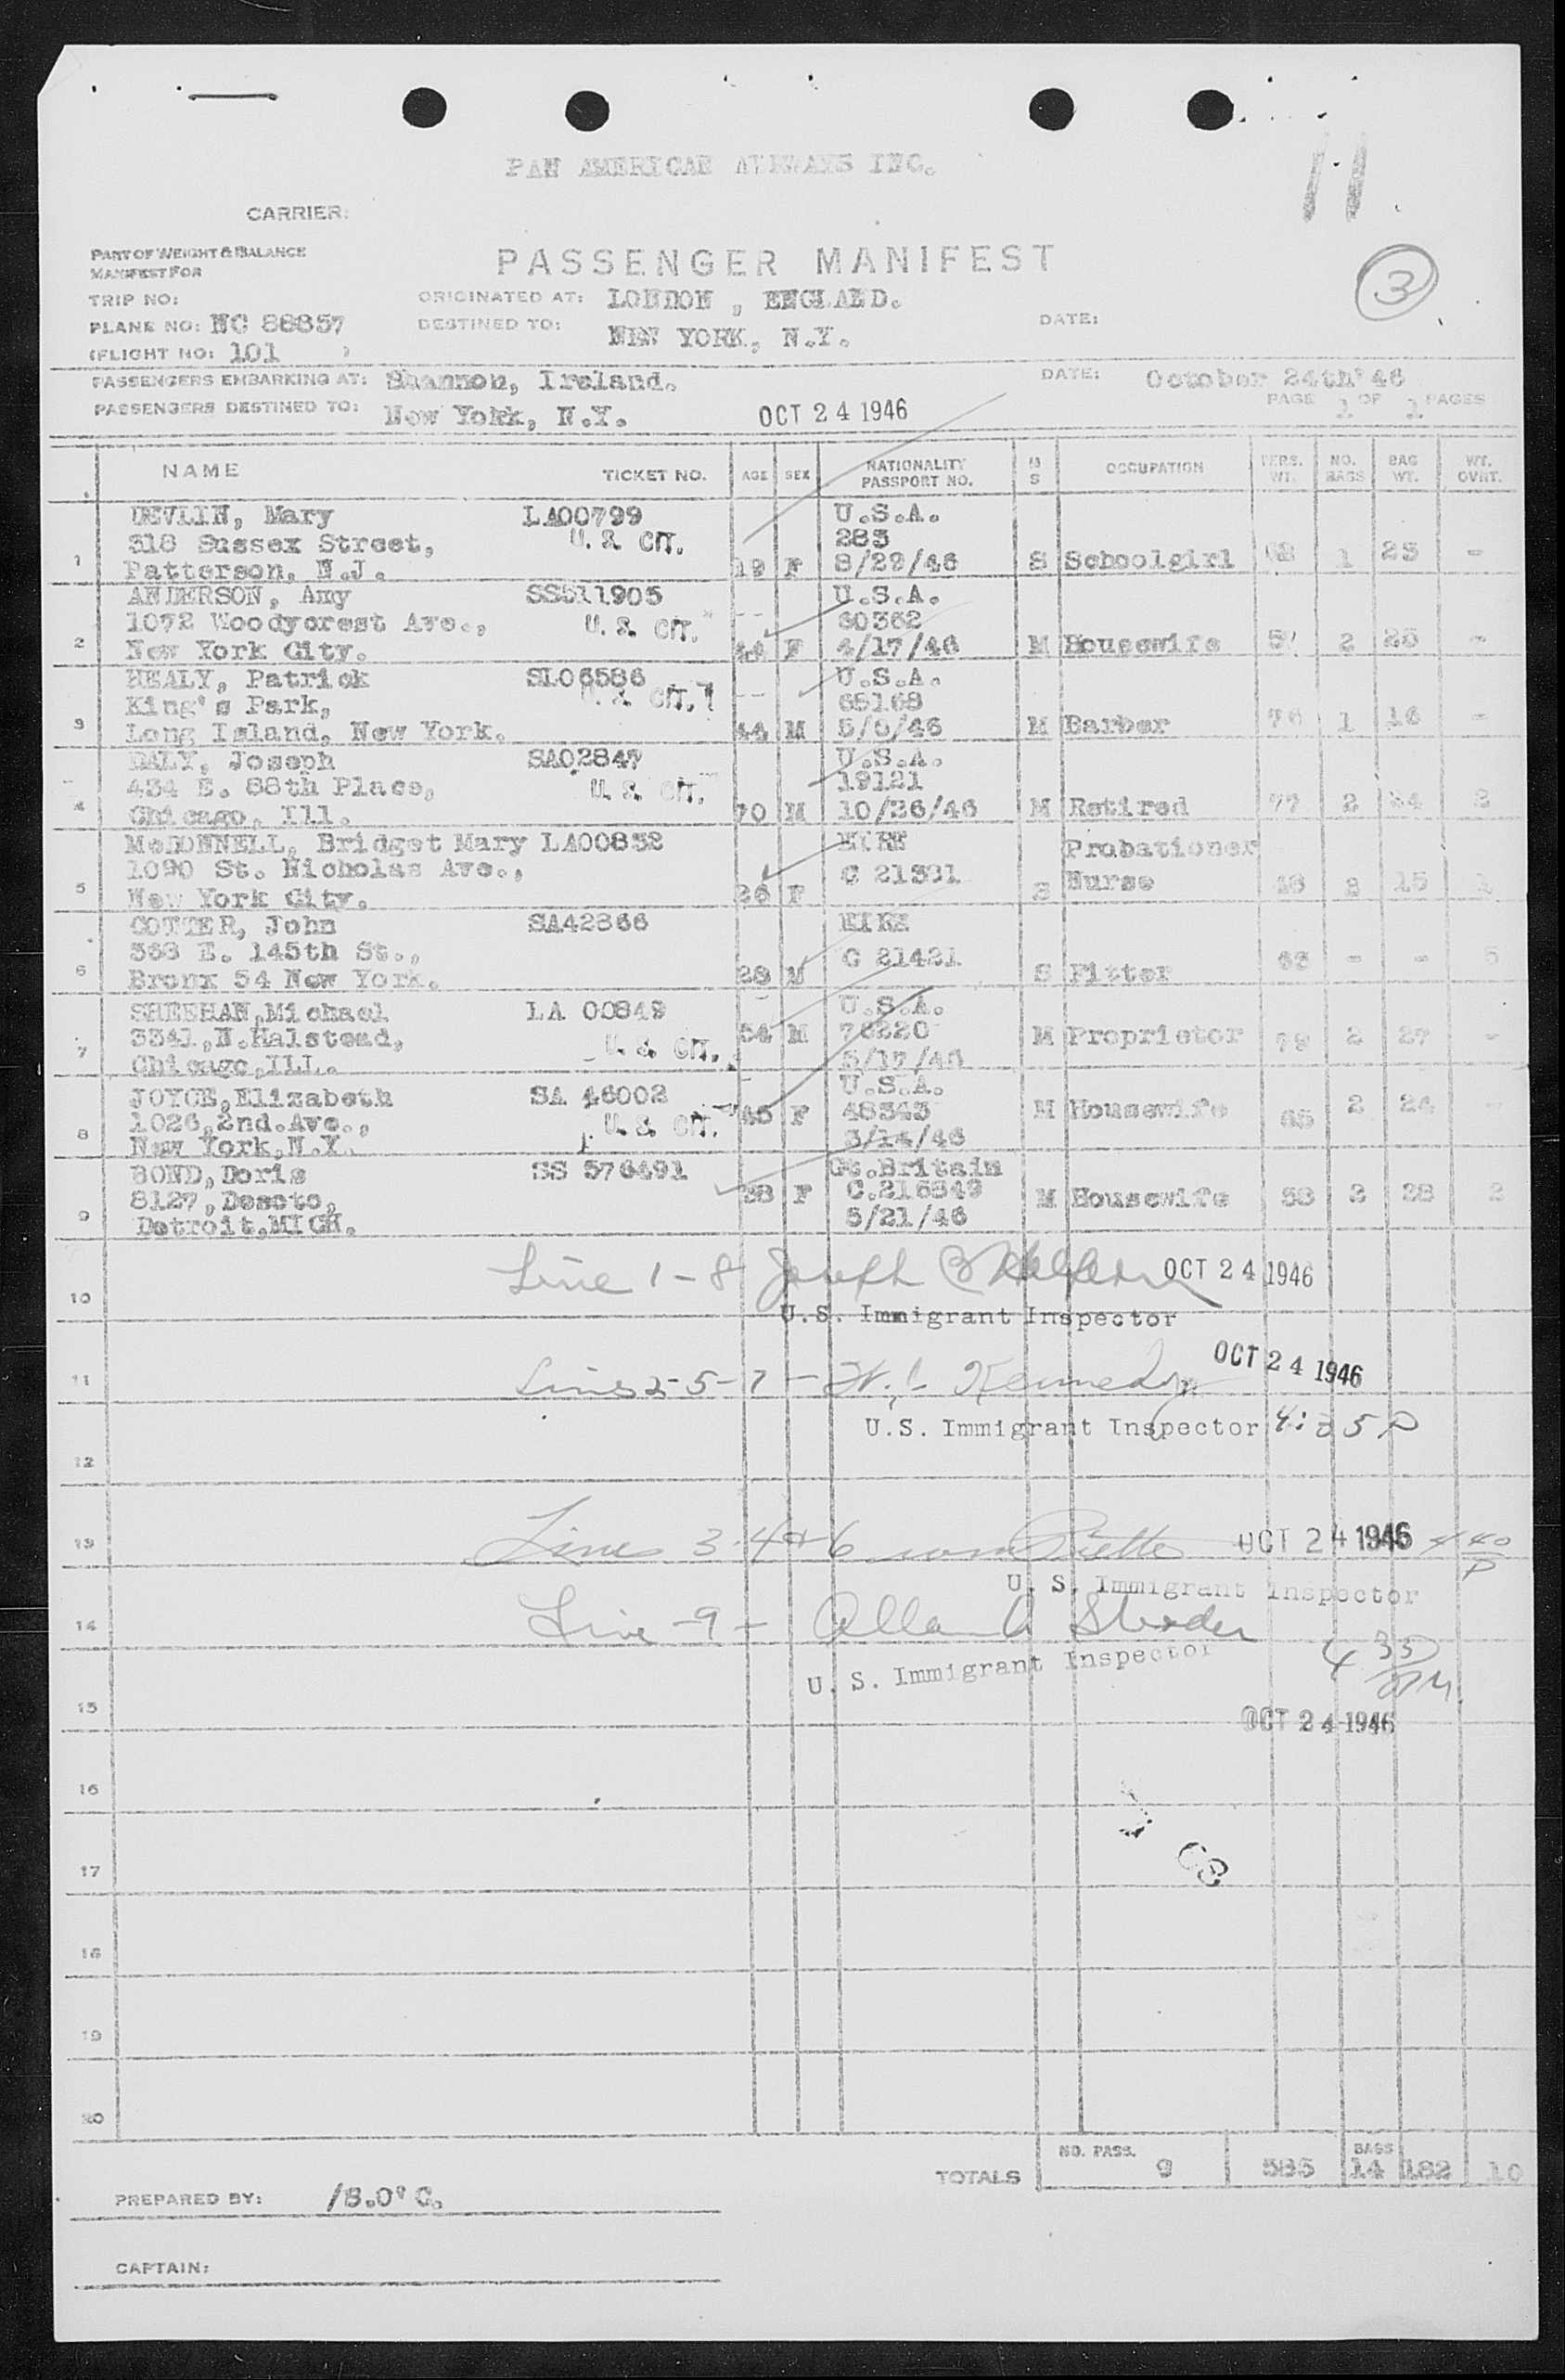 PAN AMERICAN AIRWAYS INC.
11
CARRIER:
PART OF WEIGHT & BALANCE
MANIFEST FOR
PASSENGER MANIFEST
3
TRIP NO:
ORIGINATED AT: LONDON, ENGLAND.
PLANE NO: NC 88857
DESTINED TO: NEW YORK, N.Y.
DATE:
(FLIGHT NO: 101 )
PASSENGERS EMBARKING AT: Shannon, Ireland.
DATE: October 24th'46
PASSENGERS DESTINED TO: New York, N.Y.
OCT 24 1946
PAGE 1 OF 1 PAGES
NAME TICKET NO. AGE SEX NATIONALITY PASSPORT NO. M S OCCUPATION PERS. WT. NO. BAGS BAG WT. WT. OVRT.
DEVLIN, Mary LA00799 U.S.A.
318 Sussex Street, U. S. CIT. 283
1 Patterson, N.J. 19 F 8/29/46 S Schoolgirl 1 25 -
ANDERSON, Amy SS511905 U.S.A.
1072 Woodycrest Ave., U. S. CIT. 60362
2 New York City. 44 F 4/17/46 M Housewife 2 -
HEALY, Patrick SL06586 U.S.A.
King's Park, U. S. CIT. 65168
3 Long Island, New York. 44 M M Barber 76 1 16 -
DALY, Joseph SA02847 U.S.A.
434 E. 88th Place, U. S. CIT. 19121
4 Chicago, Ill. 70 M 10/26/46 M Retired 77 2 2
McDONNELL, Bridget Mary LA00832 EIRE Probationer
1090 St. Nicholas Ave., C 21331
5 New York City. 26 F S Nurse 15 1
COTTER, John SA42866 EIRE
368 E. 145th St., C 21421
6 Bronx 54 New York. 28 M S Fitter - - 5
SHEEHAN,Michael LA 00849 U.S.A.
3341,N.Halstead, 54 M 76220 M Proprietor 79 2 27 -
7 Chicago,ILL. U. S. CIT.
JOYCE,Elizabeth SA 46002 U.S.A.
1026,2nd.Ave., U. S. CIT. 45 F 48343 M Housewife 65 2 24 -
8 New York,N.Y. 3/14/46
BOND,Doris SS 576491 Gt.Britain
8127,Desoto, 38 F C.216549 M Housewife 58 28 2
9 Detroit,MICH. 5/21/46
Line 1-8 Joseph B OCT 24 1946
10
U.S. Immigrant Inspector
OCT 24 1946
11 Lines 2-5-7 - Kennedy
U.S. Immigrant Inspector 4:25 P
12
13 Lines 3-4+6 OCT 24 1946 4 40 P
U. S. Immigrant Inspector
14 Line -9- Allan
U. S. Immigrant Inspector 4 35 PM
15
OCT 24 1946
16
17
18
19
20
TOTALS NO. PASS. 9 585 BAGS 14 182 10
PREPARED BY: /B.O'C.
CAPTAIN: